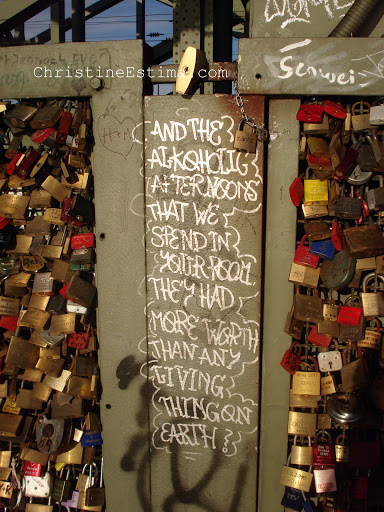 ChristineEstima.com
H+A
AND THE
ALKOHOLIC
AFTERNOONS
THAT WE
SPEND IN
YOUR ROOM
THEY HAD
MORE WORTH
THAN ANY
LIVING
THING ON
EARTH!